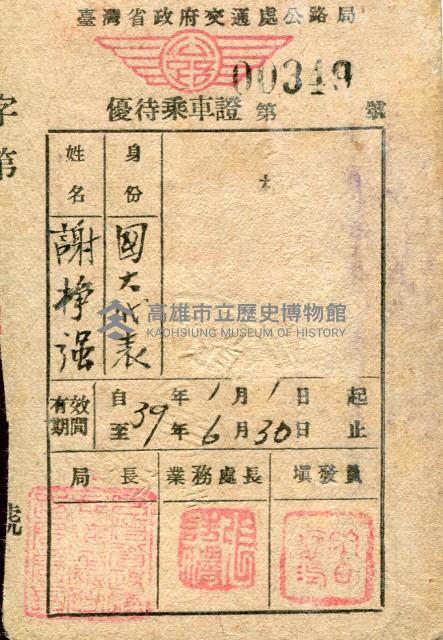 臺灣省政府交通處公路局
00349
優待乘車證 第 號
字第
號
姓名 身份
謝掙强 國大代表
高雄市立歷史博物館
KAOHSIUNG MUSEUM OF HISTORY
有效期間
自 年 1 月 1 日 起
至 39 年 6 月 30 日 止
局長 業務處長 填發員